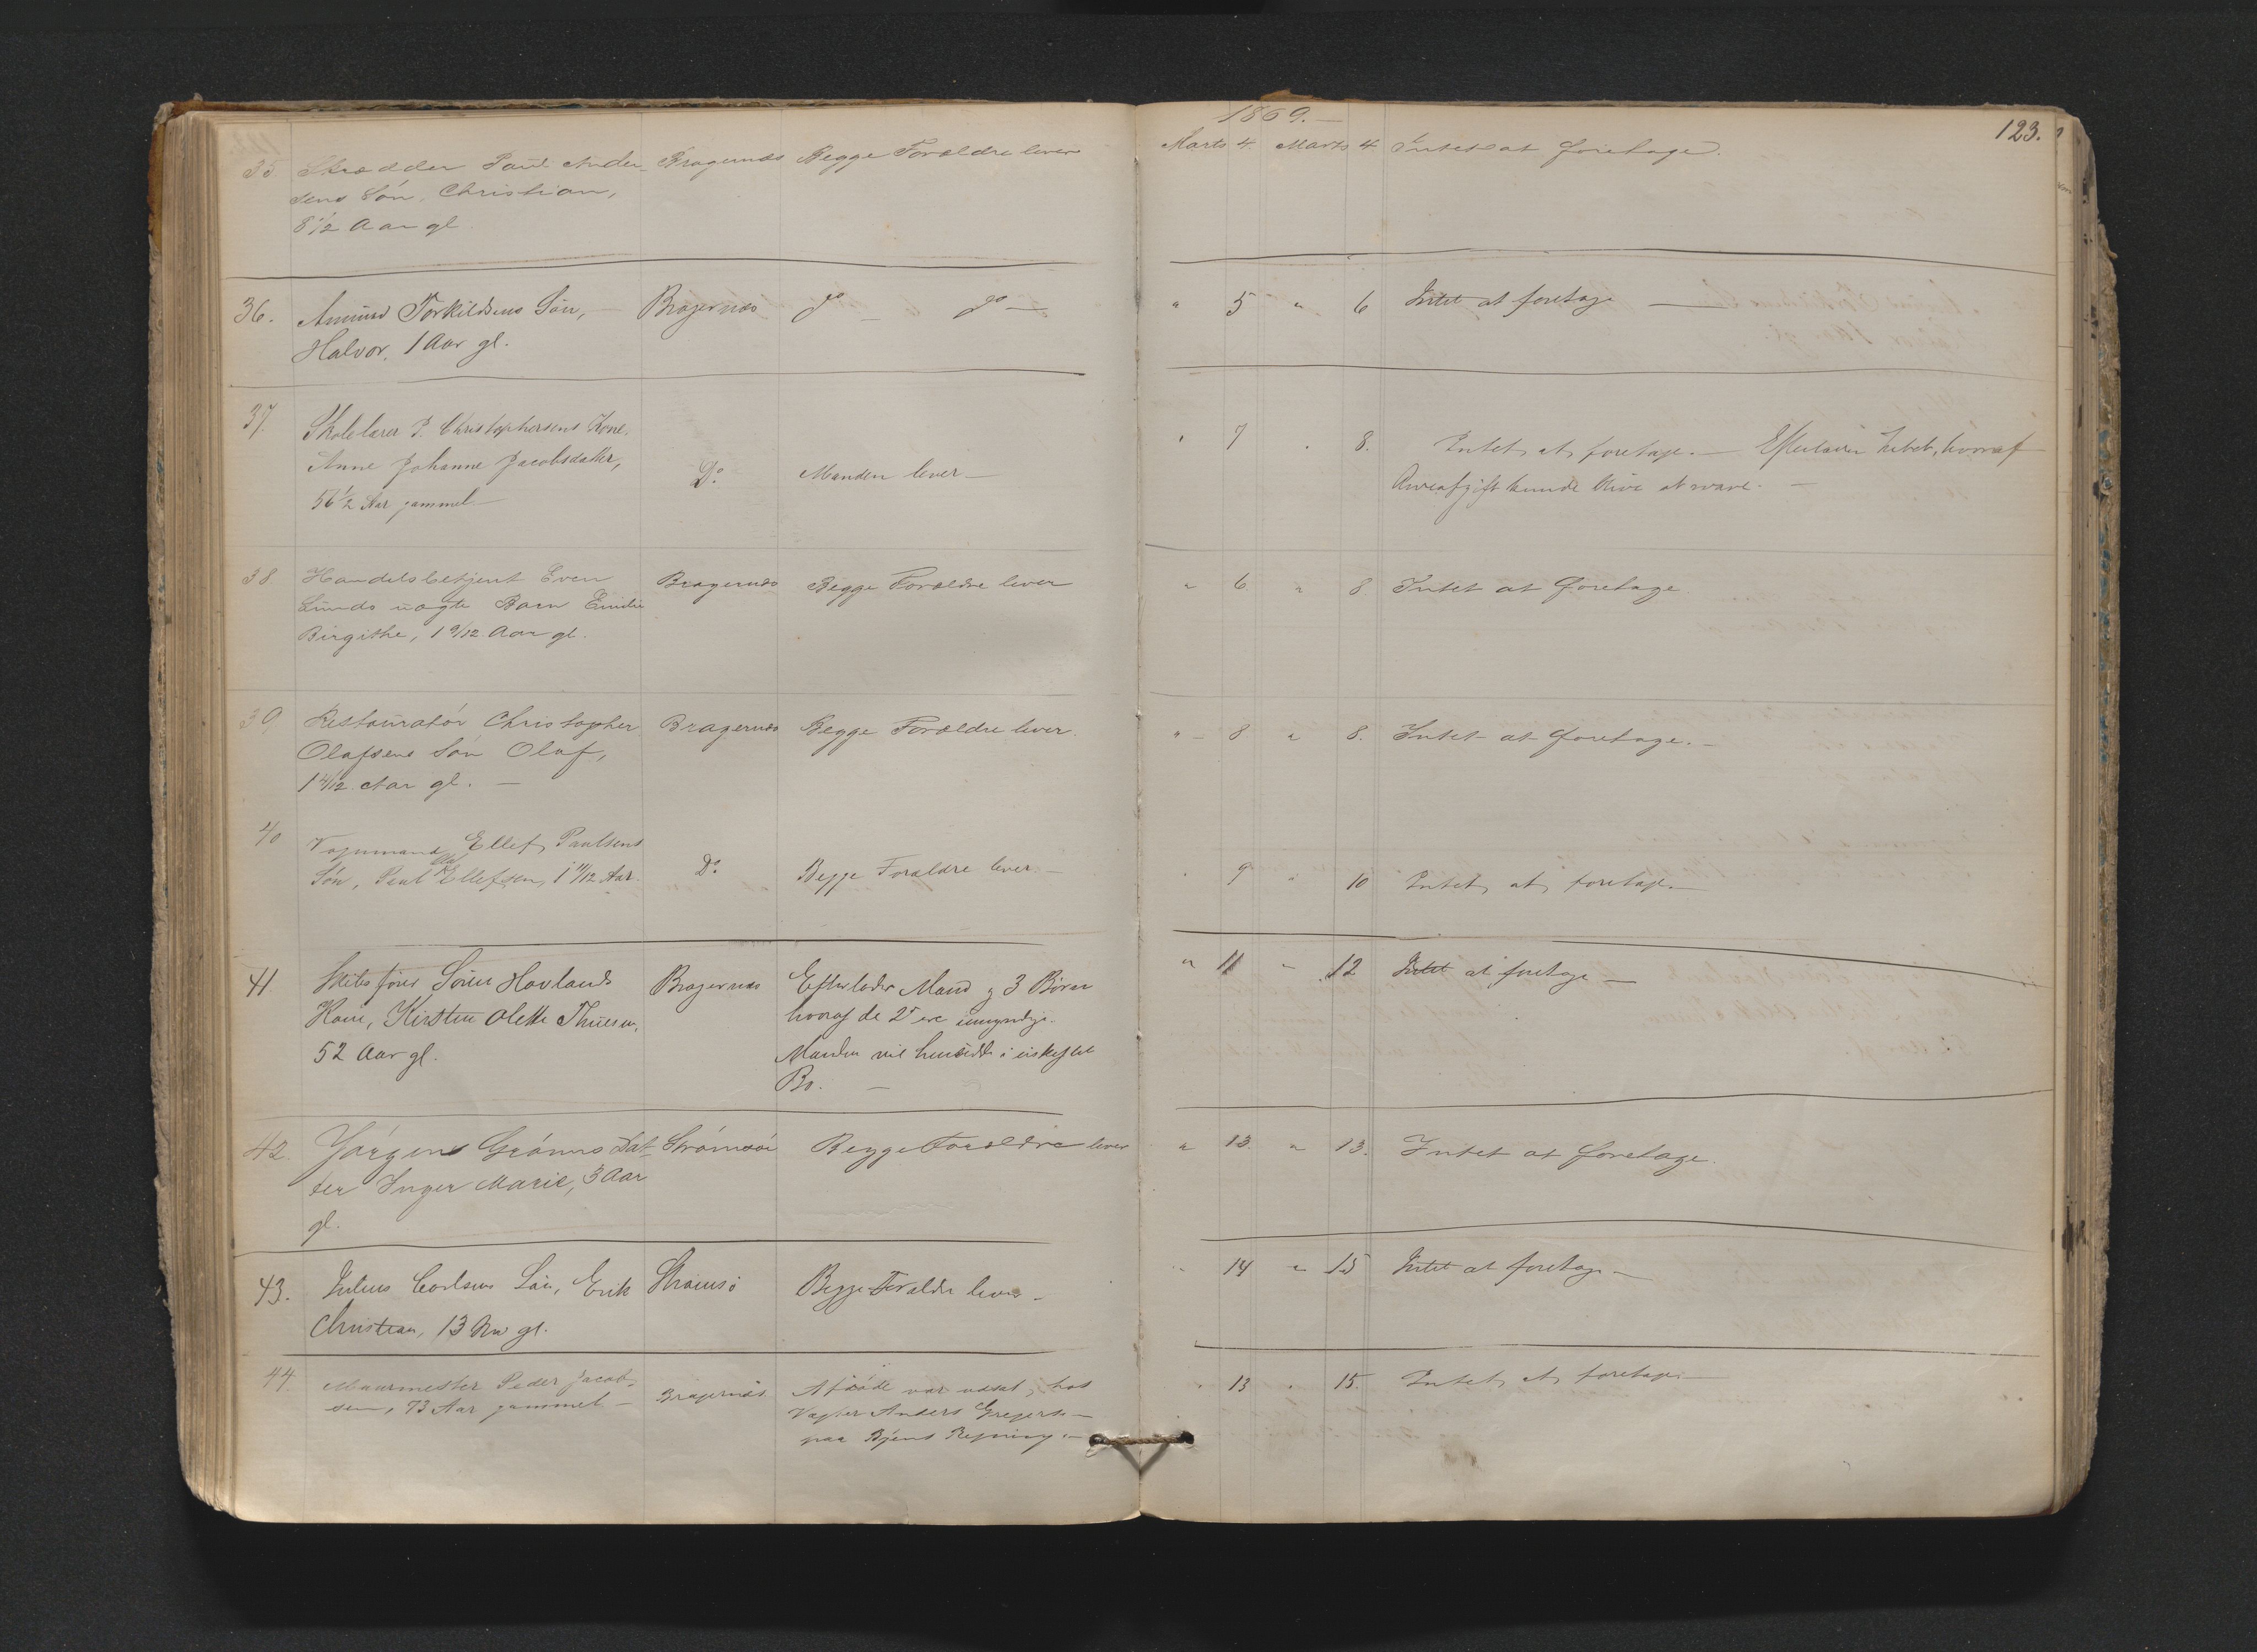 1869.
123.
35 Skrædder Paul Ander- Bragernæs Begge Forældre lever Marts 4. Marts 4 Intet at foretage.
sens Søn, Christian,
8 1/2 Aar gl
36. Amund Torkildsens Søn, Bragernæs do do " 5 " 6 Intet at foretage
Halvor, 1 Aar gl.
37. Skolelærer P. Christophersens Kone,
Anne Johanne Jacobsdatter, Do. Manden lever " 7 " 8. Intet at foretage. hvoraf
56 1/2 Aar gammel Arveafgift kunde blive at svare.
38 Handelsbetjent Even Bragernæs Begge Forældre lever " 6 " 8 Intet at foretage.
Lunds uægte Barn Emilie
Birgithe, 1 9/12 Aar gl.
39 Restauratør Christopher Bragernæs Begge Forældre lever. " 8 " 8. Intet at foretage.
Olafsens Søn Olaf,
1 4/12 Aar gl.
40 Vognmand Ellef Paulsens
Søn, Paul Ellefsen, 1 11/12 Aar. Do. Begge Forældre lever. " 9 " 10 Intet at foretage
41 Skibsfører Søren Havlands Bragernæs Efterlader Mand og 3 Børn " 11 " 12 Intet at foretage
Kone, Kirstine Olette Thuesen, hvoraf de 2 ere umyndige.
52 Aar gl. Manden vil hensidde i uskiftet
Bo.
42. Jørgens Grønns Dat- Strømsøe Begge Forældre lever " 13. " 13. Intet at foretage.
ter Inger Marie, 3 Aar
gl.
43. Julius Carlsens Søn, Erik Strømsø Begge Forældre lever " 14 " 15 Intet at foretage
Christian, 13 Aar gl.
44. Muurmester Peder Jacob- Bragernæs Afdøde var udsat hos " 13 " 15. Intet at foretage
sen, 73 Aar gammel Vægter Anders Gregersen
paa Byens Regning.